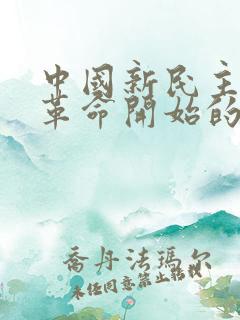 中國新民主
革命開始的
喬丹法瑪尔
未经同意禁止转载